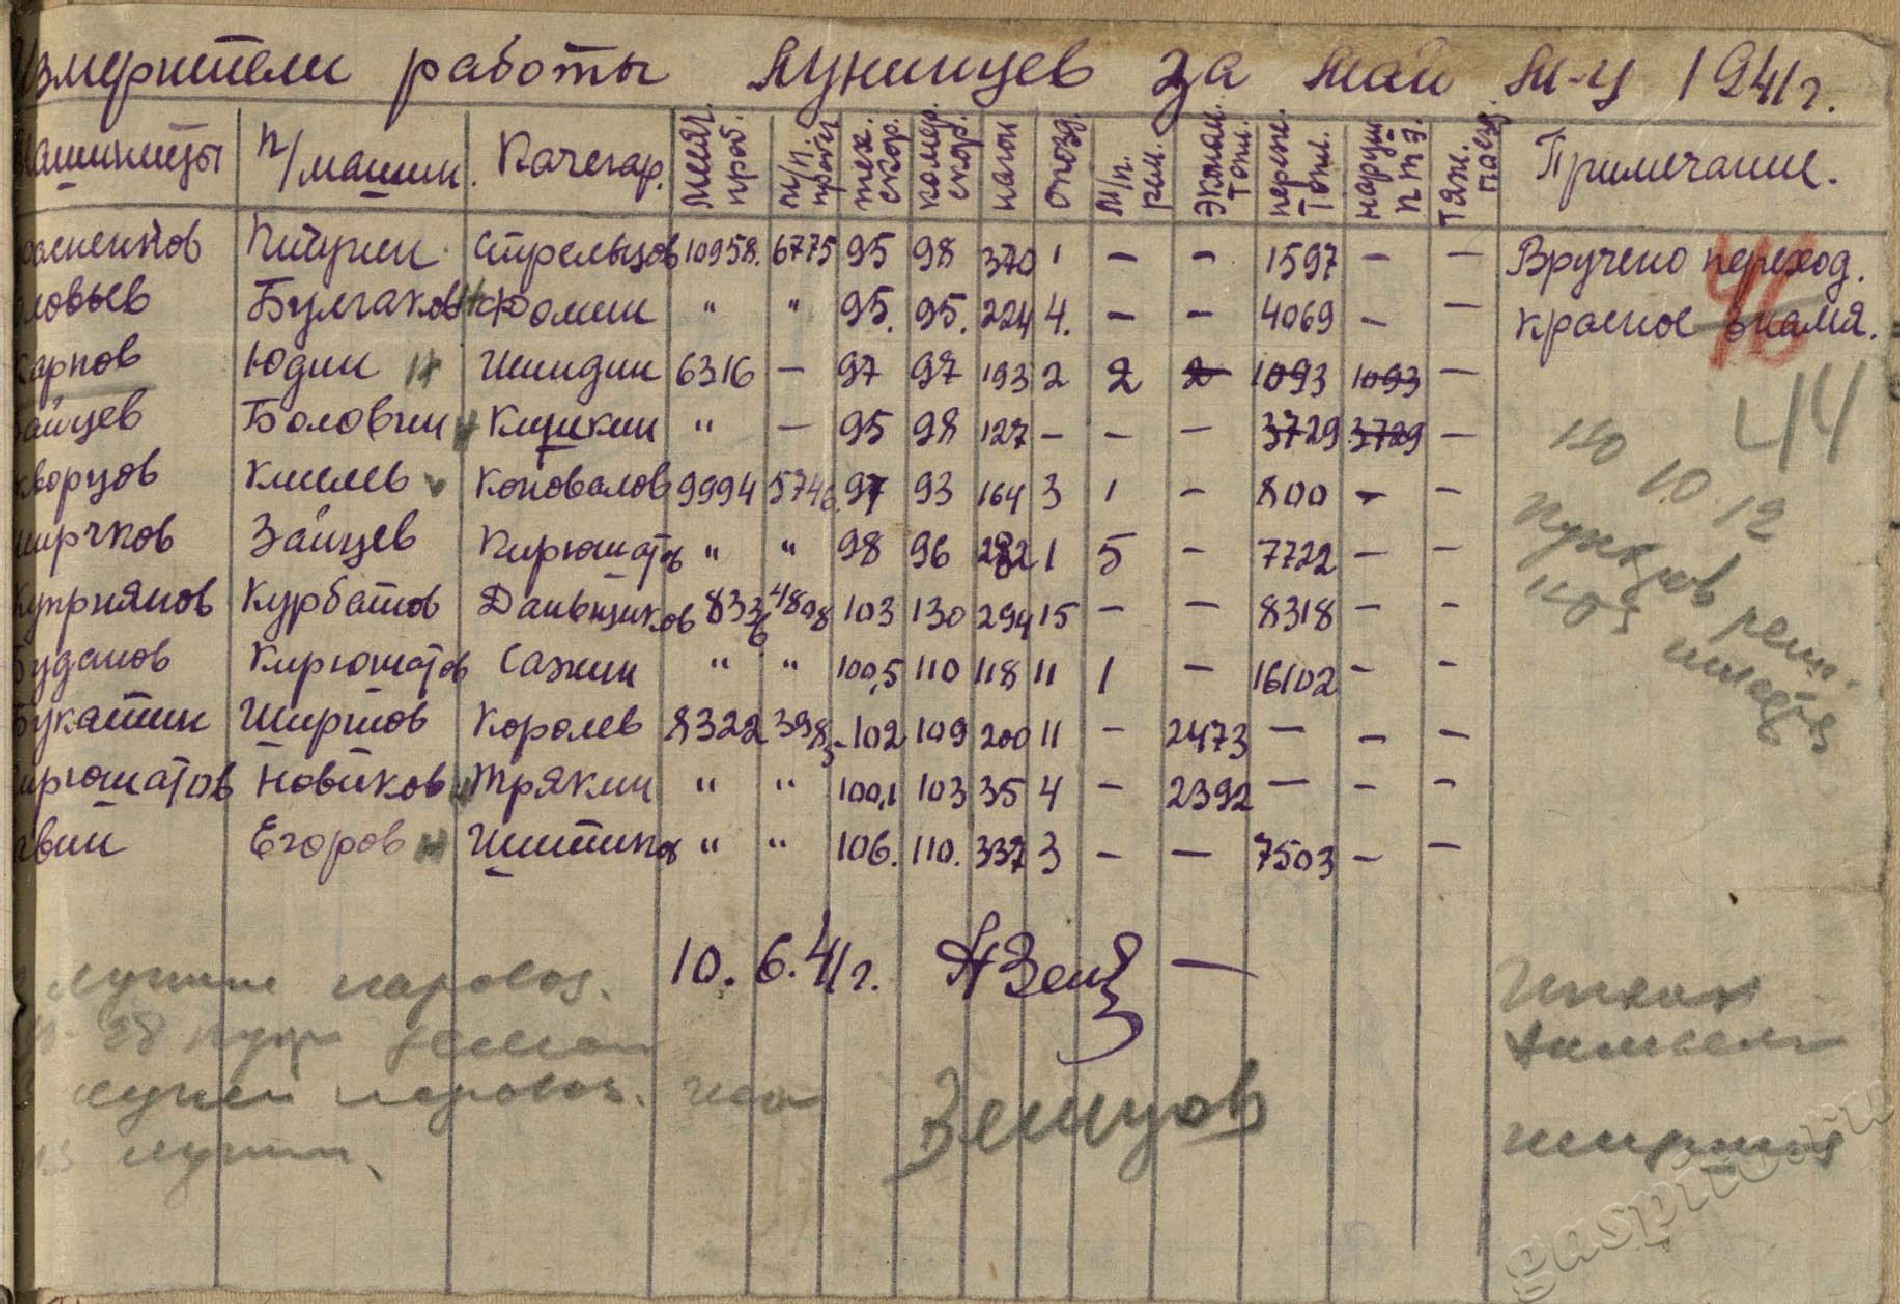 змерители работы лунинцев за май м-ц 1941г.
ашинисты п/машин. Качегар. Месяч. проб. м/п. пробег тех. скор. комер. скор. нагон опозд. м/п. рем. Эконом. Топл. переж. Топл. наруш ПТЭ. тяж. поезд. Примечание.
асненков Пичугин Стрельцов 10958. 6775 95 98 370 1 — — 1597 — — Вручено переход.
ловьев Булгаков Фомин " " 95. 95. 224 4. — — 4069 — — красное знамя.
Карпов Юдин Шиндин 6316 — 97 97 193 2 2 2 1093 1093 — 46
айцев Боловин Кишкин " — 95 98 127 — — — 3729 3729 — 44
кворцов Киселев Коновалов 9994 5746 97 93 164 3 1 — 800 — — 10 12
ирчков Зайцев Кирюшатов " " 98 96 282 1 5 — 7722 — —
Куприянов Курбатов Данильщиков 8336 4808 103 130 294 15 — — 8318 — —
Буданов Кирюшатов Сажин " " 100,5 110 118 11 1 — 16102 — —
Букатин Ширшов Королев 8322 3983 102 109 200 11 — 2473 — — —
ирюшатов Новиков ТряКин " " 100,1 103 35 4 — 2392 — — —
авин Егоров Шитиков " " 106. 110. 337 3 — — 7503 — —
10. 6. 41г. АЗемц —
лунин паровоз.
28
лунин паровоз.
Земцов
лунин
Ширшов
gaspito.ru